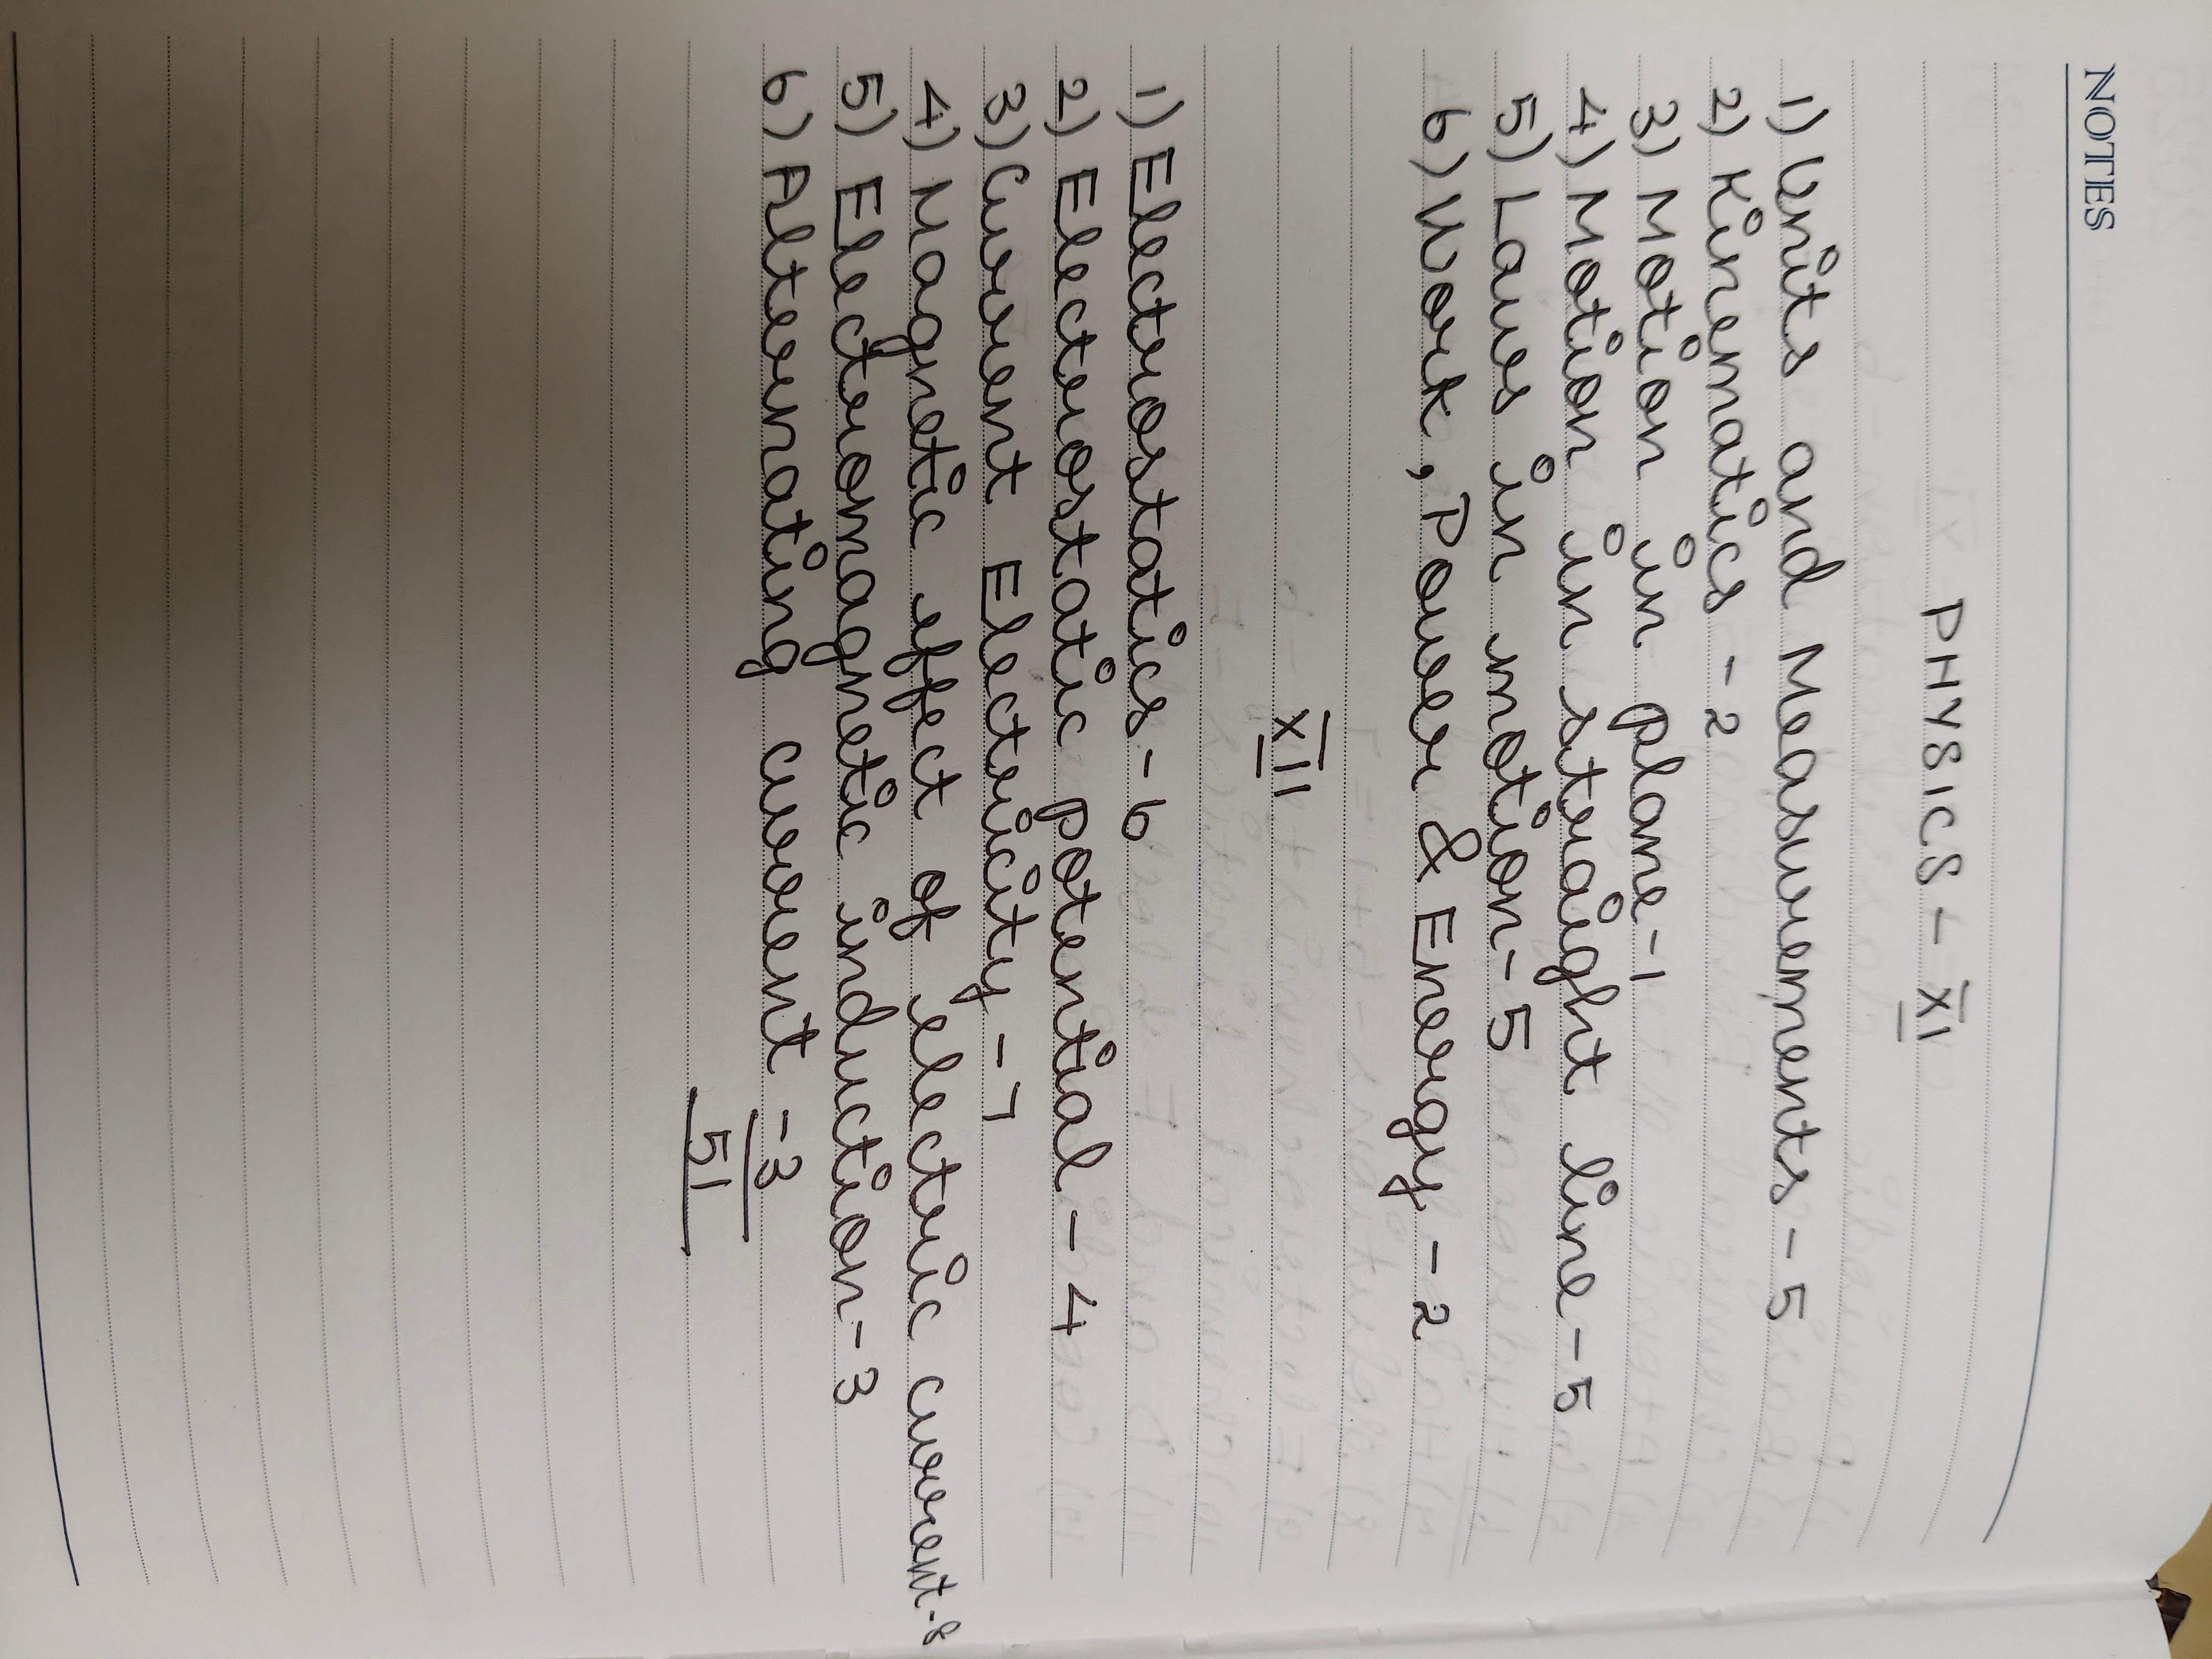 NOTES
PHYSICS - XI
1) Units and Measurements - 5
2) Kinematics - 2
3) Motion in plane - 1
4) Motion in straight line - 5
5) Laws in motion - 5
6) Work, Power & Energy - 2
XII
1) Electrostatics - 6
2) Electrostatic potential - 4
3) Current Electricity - 7
4) Magnetic effect of electric current - 8
5) Electromagnetic induction - 3
6) Alternating current - 3
51